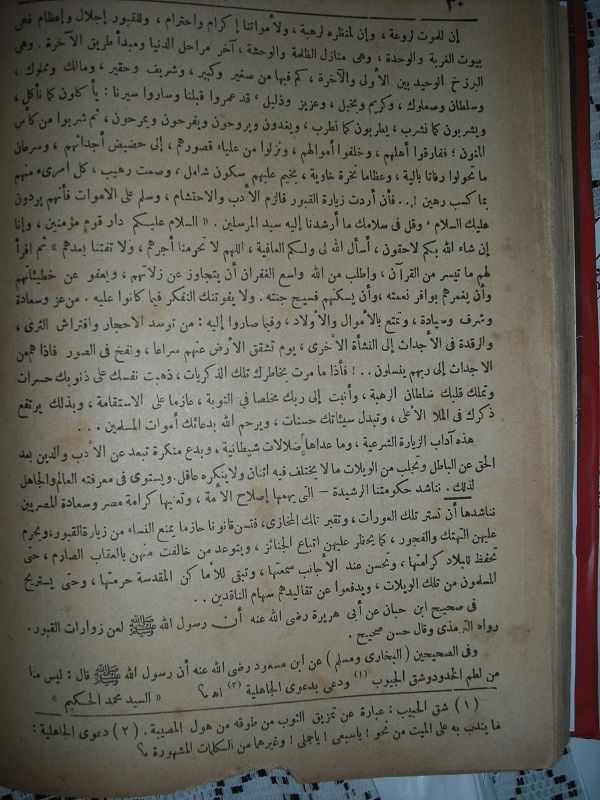 ٣٠
إن للموت لروعة ، وإن لمنظره لرهبة ، ولأمواتنا إكرام واحترام ، وللقبور إجلال وإعظام فهى
بيوت الغربة والوحدة ، وهى منازل الظلمة والوحشة ، آخر مراحل الدنيا ومبدأ طريق الآخرة . وهى
البرزخ الوحيد بين الأولى والآخرة ، كم فيها من صغير وكبير ، وشريف وحقير ، ومالك ومملوك ،
وسلطان وصعلوك ، وكريم وبخيل ، وعزيز وذليل ، قد عمروا قبلنا وساروا سيرنا : يأكلون كما نأكل ،
ويشربون كما نشرب ، يطربون كما نطرب ، ويغدون ويروحون ويفرحون ويمرحون ، ثم شربوا من كأس
المنون ؛ ففارقوا أهلهم ، وخلفوا أموالهم ، ونزلوا من علياء قصورهم ، إلى حضيض أجداثهم ، وسرعان
ما تحولوا رفاتا بالية ، وعظاما نخرة خاوية ، يخيم عليهم سكون شامل ، وصمت رهيب ، كل امرىء منهم
بما كسب رهين ! .. فأن أردت زيارة القبور فالزم الأدب والاحتشام ، وسلم على الاموات فأنهم يردون
عليك السلام ، وقل فى سلامك ما أرشدنا إليه سيد المرسلين . « السلام عليكم دار قوم مؤمنين ، وإنا
إن شاء الله بكم لاحقون ، أسأل الله لى ولكم العافية ، اللهم لا تحرمنا أجرهم ، ولا تفتنا بعدهم » ثم اقرأ
لهم ما تيسر من القرآن ، واطلب من الله واسع الغفران أن يتجاوز عن زلاتهم ، ويعفو عن خطيئاتهم
وأن يغمرهم بوافر نعمته ، وأن يسكنهم فسيح جنته . ولا يفوتنك التفكر فيما كانوا عليه . من عز وسعادة
وشرف وسيادة ، وتمتع بالأموال والأولاد ، وفيما صاروا إليه : من توسد الاحجار وافتراش الثرى ،
والرقدة فى الأجداث إلى النشأة الأخرى ، يوم تشقق الأرض عنهم سراعا ، ونفخ فى الصور فاذا هم من
الاجداث إلى ربهم ينسلون . . ! فأذا ما مرت بخاطرك تلك الذكريات ، ذهبت نفسك على ذنوبك حسرات
وتملك قلبك سلطان الرهبة ، وأنبت إلى ربك مخلصا فى التوبة ، عازما على الاستقامة ، وبذلك يرتفع
ذكرك فى الملأ الأعلى ، وتبدل سيئاتك حسنات ، ويرحم الله بدعائك أموات المسلمين . . .
هذه آداب الزيارة الشرعية ، وما عداها ضلالات شيطانية ، وبدع منكرة تبعد عن الأدب والدين بعد
الحق عن الباطل وتجلب من الويلات ما لا يختلف فيه اثنان ولا ينكره عاقل. ويستوى فى معرفته العالم والجاهل
لذلك . نناشد حكومتنا الرشيدة — التى يهمها إصلاح الأمة ، وتعنيها كرامة مصر وسعادة المصريين
نناشدها أن تستر تلك العورات ، وتقبر تلك المخازى، فتسن قانونا حازما يمنع النساء من زيارة القبور، ويحرم
عليهن التهتك والفجور ، كما يحظر عليهن اتباع الجنائز ، ويتوعد من خالفت منهن بالعقاب الصارم ، حتى
تحفظ للبلاد كرامتها ، وتحسن عند الأجانب سمعتها ، وتبقى للأماكن المقدسة حرمتها ، وحتى يستريح
المسلمون من تلك الويلات ، ويدفعوا عن تقاليدهم سهام الناقدين . .
فى صحيح ابن حبان عن أبى هريرة رضى الله عنه أن رسول الله ﷺ لعن زوارات القبور .
رواه الترمذى وقال حسن صحيح .
وفى الصحيحين ( البخارى ومسلم ) عن ابن مسعود رضى الله عنه أن رسول الله ﷺ قال : ليس منا
من لطم الخدود وشق الجيوب (١) ودعى بدعوى الجاهلية (٢) اهـ « السيد محمد الحكيم »
( ١ ) شق الجيب : عبارة عن تمزيق الثوب من طوقه من هول المصيبة . ( ٢ ) دعوى الجاهلية :
ما يندب به على الميت من نحو ! ياسبعى ! ياجملى ! وغيرها من الكلمات المشهورة